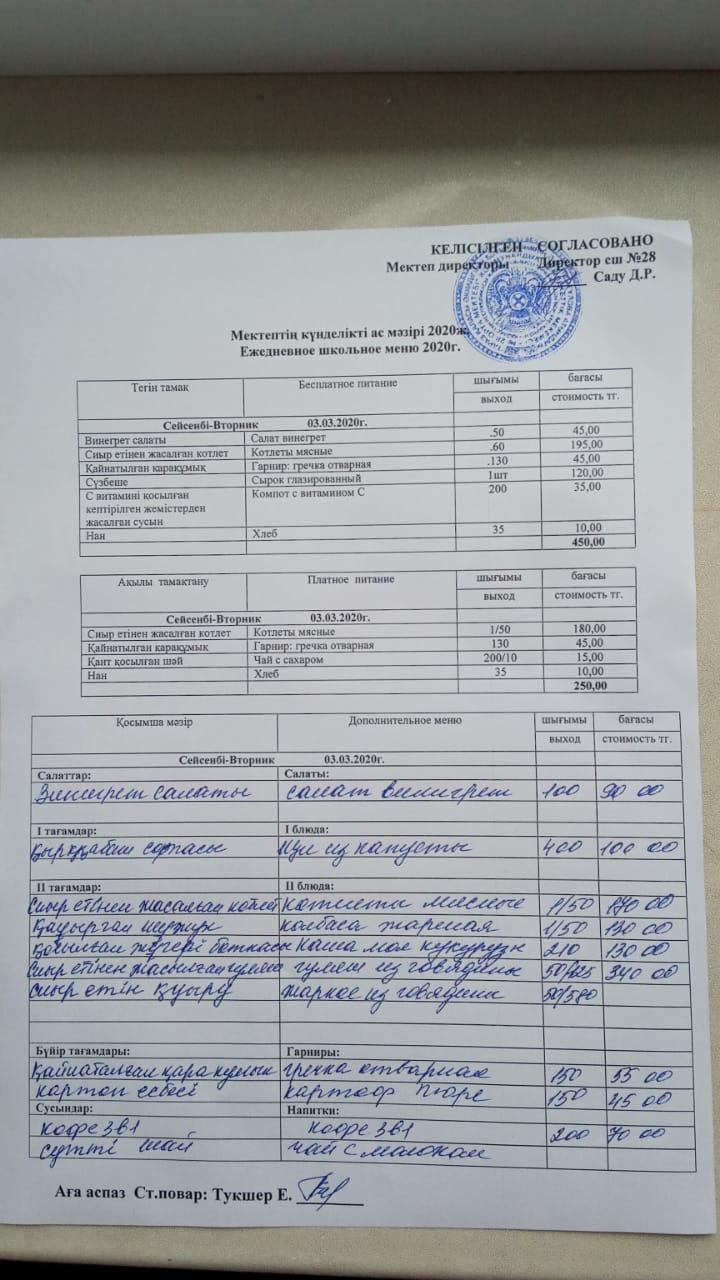 КЕЛІСІЛГЕН СОГЛАСОВАНО
Мектеп директоры Директор сш №28
Саду Д.Р.
Мектептің күнделікті ас мәзірі 2020ж.
Ежедневное школьное меню 2020г.
Тегін тамақ Бесплатное питание шығымы бағасы
выход стоимость тг.
Сейсенбі-Вторник 03.03.2020г.
Винегрет салаты Салат винегрет .50 45,00
Сиыр етінен жасалған котлет Котлеты мясные .60 195,00
Қайнатылған қарақұмық Гарнир: гречка отварная .130 45,00
Сүзбеше Сырок глазированный 1шт 120,00
С витамині қосылған Компот с витамином С 200 35,00
кептірілген жемістерден
жасалған сусын
Нан Хлеб 35 10,00
450,00
Ақылы тамақтану Платное питание шығымы бағасы
выход стоимость тг.
Сейсенбі-Вторник 03.03.2020г.
Сиыр етінен жасалған котлет Котлеты мясные 1/50 180,00
Қайнатылған қарақұмық Гарнир: гречка отварная 130 45,00
Қант қосылған шәй Чай с сахаром 200/10 15,00
Нан Хлеб 35 10,00
250,00
Қосымша мәзір Дополнительное меню шығымы бағасы
выход стоимость тг.
Сейсенбі-Вторник 03.03.2020г.
Салаттар: Салаты:
Винегрет салаты салат винегрет 100 90 00
I тағамдар: I блюда:
Қырыққабат сорпасы Щи из капусты 400 100 00
II тағамдар: II блюда:
Сиыр етінен жасалған котлет котлеты мясные 1/50 170 00
Қуырған шұжық колбаса жареная 1/50 130 00
жүгері ботқасы каша мол кукурузн 210 130 00
Сиыр етінен жасылған гуляш гуляш из говядины 340 00
Сиыр етін қуыру жаркое из говядины
Бүйір тағамдары: Гарниры:
Қайнаталған қара құмық гречка отварная 150 55 00
картоп езбесі картоф пюре 150 45 00
Сусындар: Напитки:
Кофе 3в1 Кофе 3в1 200 70 00
сүтті шай чай с молоком
Аға аспаз Ст.повар: Тукшер Е.